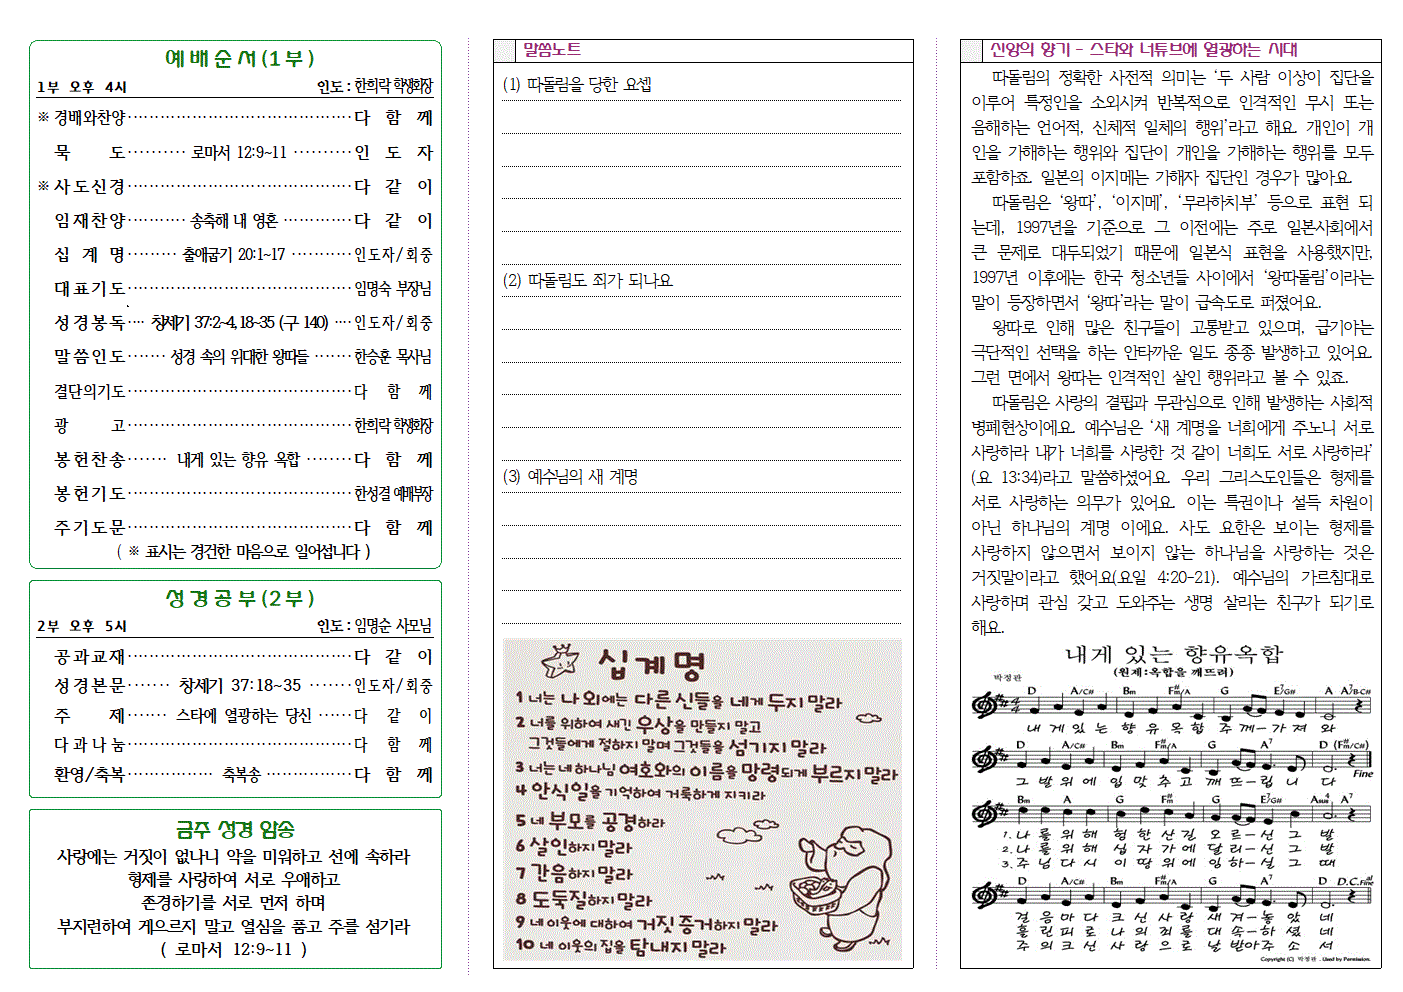 예배순서(1부)
1부 오후 4시 인도 : 한희락 학생회장
※ 경배와찬양 ······ 다 함 께
묵 도 ······ 로마서 12:9~11 ······ 인 도 자
※ 사도신경 ······ 다 같 이
임재찬양 ······ 송축해 내 영혼 ······ 다 같 이
십 계 명 ······ 출애굽기 20:1~17 ······ 인도자/회중
대표기도 ······ 임명숙 부장님
성경봉독 ···· 창세기 37:2~4, 18~35 (구 140) ···· 인도자/회중
말씀인도 ······ 성경 속의 위대한 왕따들 ······ 한승훈 목사님
결단의기도 ······ 다 함 께
광 고 ······ 한희락 학생회장
봉헌찬송 ······ 내게 있는 향유 옥합 ······ 다 함 께
봉헌기도 ······ 한성결 예배부장
주기도문 ······ 다 함 께
( ※ 표시는 경건한 마음으로 일어섭니다 )
성경공부(2부)
2부 오후 5시 인도 : 임명순 사모님
공과교재 ······ 다 같 이
성경본문 ······ 창세기 37:18~35 ······ 인도자/회중
주 제 ······ 스타에 열광하는 당신 ······ 다 같 이
다과나눔 ······ 다 함 께
환영/축복 ······ 축복송 ······ 다 함 께
금주 성경 암송
사랑에는 거짓이 없나니 악을 미워하고 선에 속하라
형제를 사랑하여 서로 우애하고
존경하기를 서로 먼저 하며
부지런하여 게으르지 말고 열심을 품고 주를 섬기라
( 로마서 12:9~11 )
말씀노트
(1) 따돌림을 당한 요셉
(2) 따돌림도 죄가 되나요
(3) 예수님의 새 계명
십계명
1 너는 나 외에는 다른 신들을 네게 두지 말라
2 너를 위하여 새긴 우상을 만들지 말고
그것들에게 절하지 말며 그것들을 섬기지 말라
3 너는 네 하나님 여호와의 이름을 망령되게 부르지 말라
4 안식일을 기억하여 거룩하게 지키라
5 네 부모를 공경하라
6 살인하지 말라
7 간음하지 말라
8 도둑질하지 말라
9 네 이웃에 대하여 거짓 증거하지 말라
10 네 이웃의 집을 탐내지 말라
신앙의 향기 - 스타와 너튜브에 열광하는 시대
따돌림의 정확한 사전적 의미는 ‘두 사람 이상이 집단을
이루어 특정인을 소외시켜 반복적으로 인격적인 무시 또는
음해하는 언어적, 신체적 일체의 행위’라고 해요. 개인이 개
인을 가해하는 행위와 집단이 개인을 가해하는 행위를 모두
포함하죠. 일본의 이지메는 가해자 집단인 경우가 많아요.
따돌림은 ‘왕따’, ‘이지메’, ‘무라하치부’ 등으로 표현 되
는데, 1997년을 기준으로 그 이전에는 주로 일본사회에서
큰 문제로 대두되었기 때문에 일본식 표현을 사용했지만,
1997년 이후에는 한국 청소년들 사이에서 ‘왕따돌림’이라는
말이 등장하면서 ‘왕따’라는 말이 급속도로 퍼졌어요.
왕따로 인해 많은 친구들이 고통받고 있으며, 급기야는
극단적인 선택을 하는 안타까운 일도 종종 발생하고 있어요.
그런 면에서 왕따는 인격적인 살인 행위라고 볼 수 있죠.
따돌림은 사랑의 결핍과 무관심으로 인해 발생하는 사회적
병폐현상이에요. 예수님은 ‘새 계명을 너희에게 주노니 서로
사랑하라 내가 너희를 사랑한 것 같이 너희도 서로 사랑하라’
(요 13:34)라고 말씀하셨어요. 우리 그리스도인들은 형제를
서로 사랑하는 의무가 있어요. 이는 특권이나 설득 차원이
아닌 하나님의 계명 이에요. 사도 요한은 보이는 형제를
사랑하지 않으면서 보이지 않는 하나님을 사랑하는 것은
거짓말이라고 했어요(요일 4:20-21). 예수님의 가르침대로
사랑하며 관심 갖고 도와주는 생명 살리는 친구가 되기로
해요.
내게 있는 향유옥합
(원제:옥합을 깨뜨려)
박정관
D A/C# Bm F#m/A G E7/G# A A7B-C#
내 게 있 는 향 유 옥 합 주 께-가 져 와
D A/C# Bm F#m/A G A7 D (F#m/C#)
그 발 위 에 입 맞 추 고 깨 뜨-립 니 다
Fine
Bm A G F#m G E7/G# Asus4 A7
1.나 를 위 해 험 한 산 길 오 르-신 그 발
2.나 를 위 해 십 자 가 에 달 리-신 그 발
3.주 님 다 시 이 땅 위 에 임 하-실 그 때
D A/C# Bm F#m/A G A7 D D.C.al Fine
걸 음 마 다 크 신 사 랑 새 겨-놓 았 네
흘 린 피 로 나 의 죄 를 대 속-하 셨 네
주 의 크 신 사 랑 으 로 날 받아주 소 서
Copyright (C) 박정관. Used by Permission.